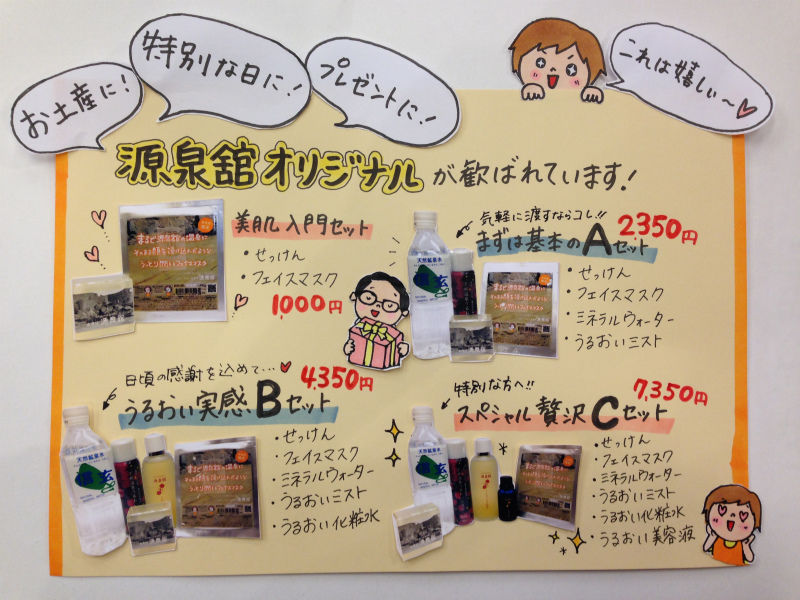 お土産に!
特別な日に!
プレゼントに!
これは嬉しぃ〜
源泉舘オリジナルが歓ばれています!
美肌入門セット
・せっけん
・フェイスマスク
1,000円
気軽に渡すならコレ!!
まずは基本のAセット
2350円
・せっけん
・フェイスマスク
・ミネラルウォーター
・うるおいミスト
日頃の感謝を込めて…
4,350円
うるおい実感Bセット
・せっけん
・フェイスマスク
・ミネラルウォーター
・うるおいミスト
・うるおい化粧水
特別な方へ!!
7,350円
スペシャル贅沢Cセット
・せっけん
・フェイスマスク
・ミネラルウォーター
・うるおいミスト
・うるおい化粧水
・うるおい美容液
天然鉱泉水